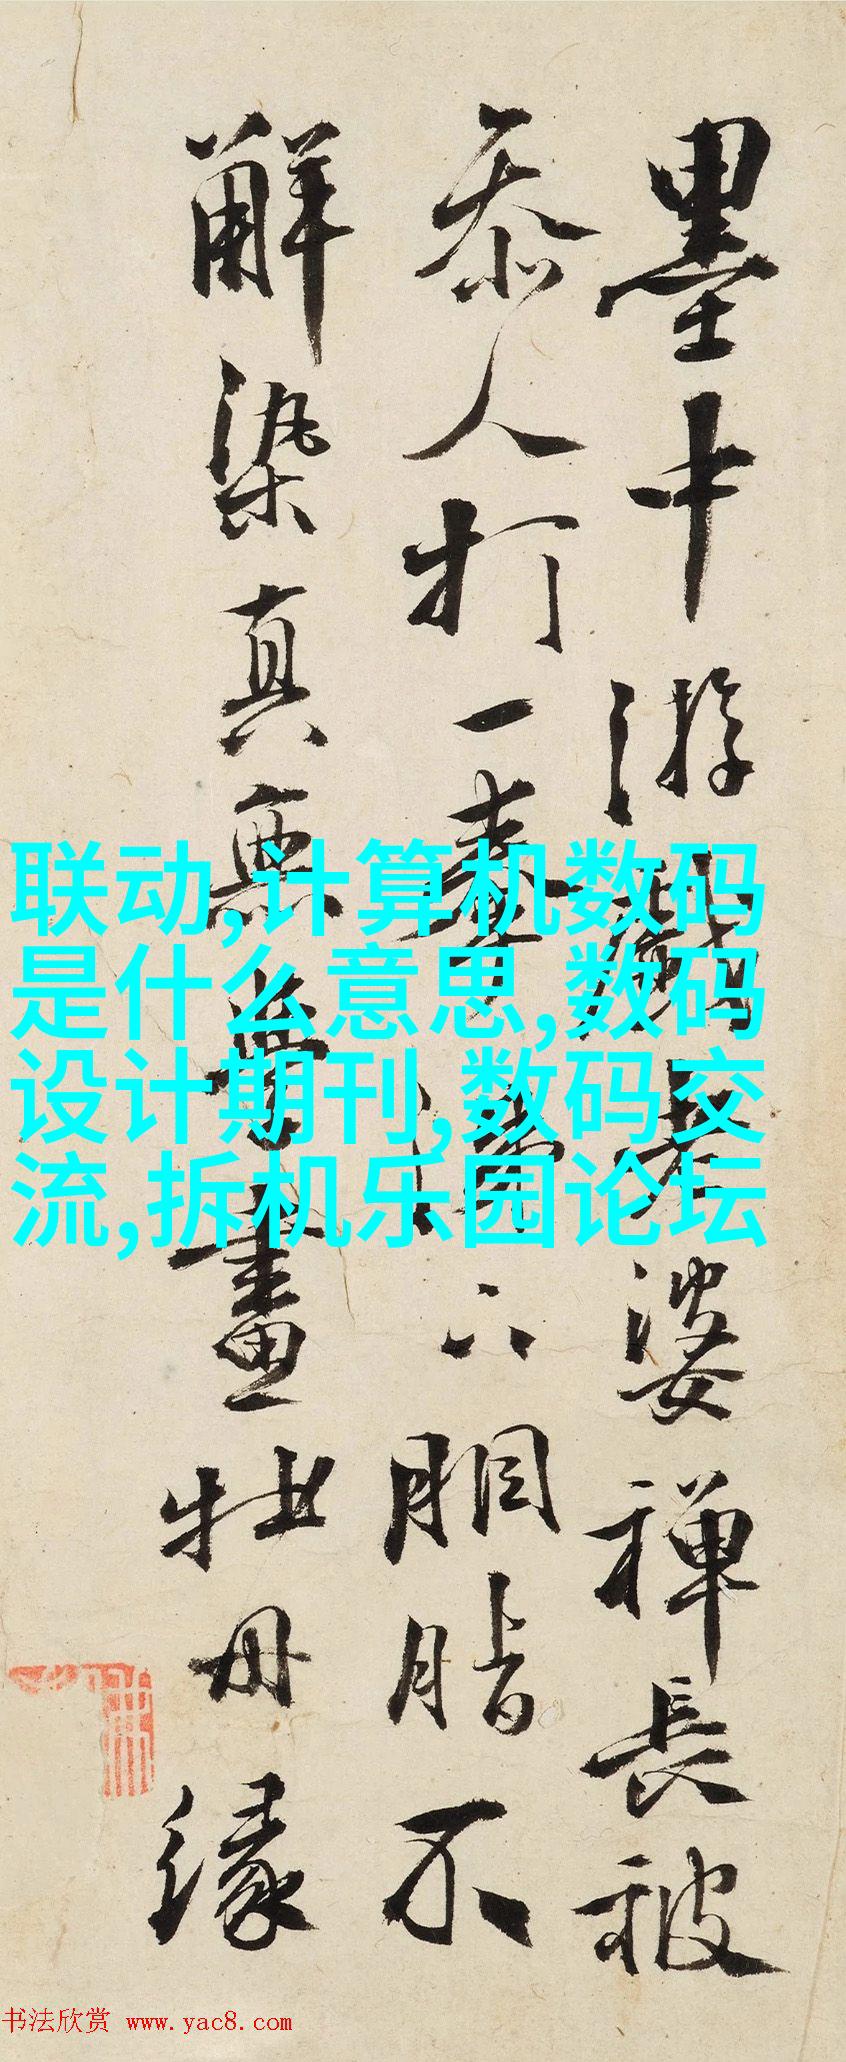 墨中游戲老婆禪長被
叅人打一拳涕下胭脂不
解染真無學畫牡丹緣
联动,计算机数码
是什么意思,数码
设计期刊,数码交
流,拆机乐园论坛
书法欣赏 www.yac8.com